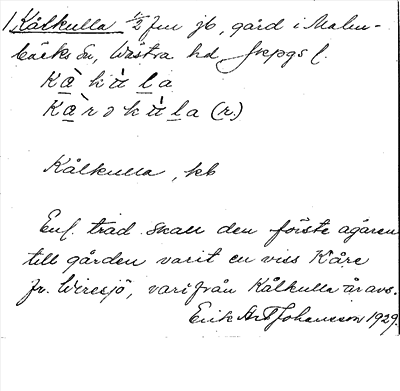 1 Kålkulla 1/2 fm jb, gård i Malm-
bäcks sn, Västra hd Jkpgs l.
Kȧ̀ku̇̀la
Kȧ̀rɔku̇̀la (r.)
Kålkulla, kb
Enl. trad. skall den förste ägaren
till gården varit en viss Kåre
fr. Wiresjö, varifrån Kålkulla är avs.
Erik Johansson 1929.